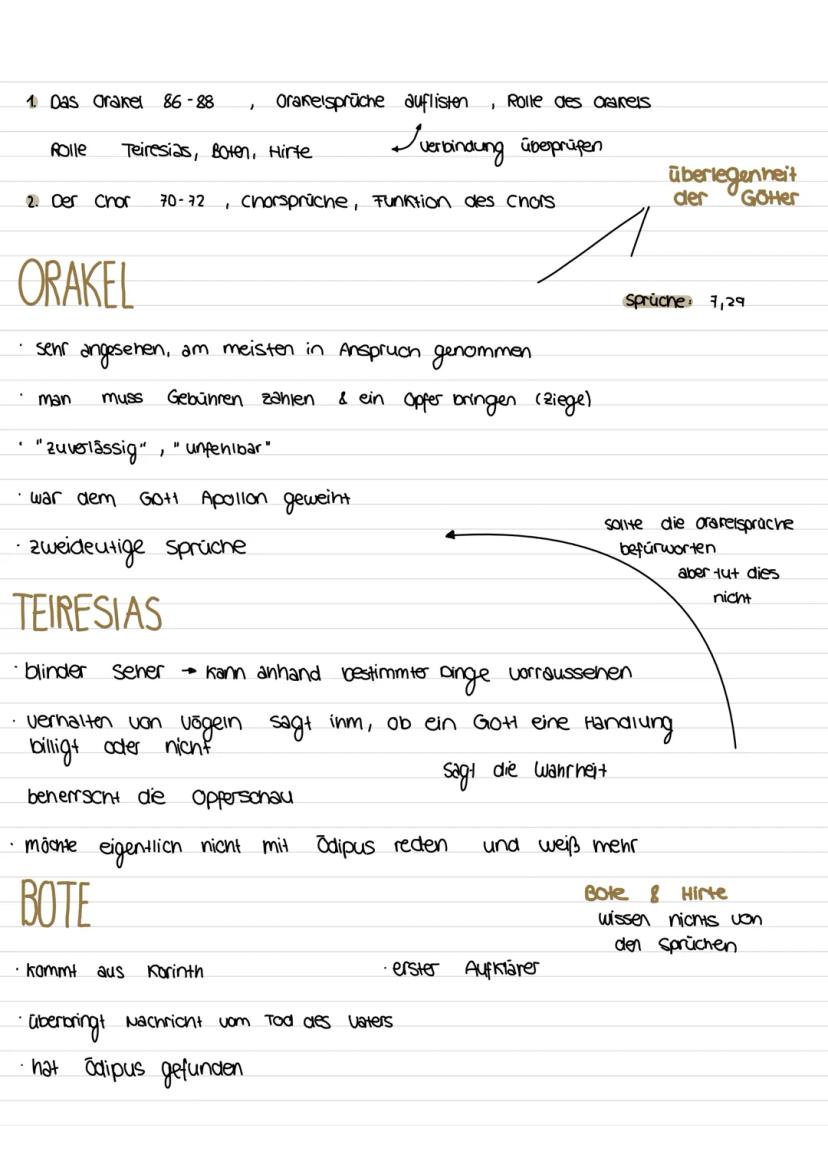 1. Das Orakel 86-88 , Orakelsprüche auflisten , Rolle des Orakels
Rolle Teiresias, Boten, Hirte
Verbindung übeprüfen
2. Der Chor 70-72 , Chorsprüche, Funktion des Chors
überlegenheit
der Götter
ORAKEL
Sprüche: 7,29
· sehr angesehen, am meisten in Anspruch genommen
· man muss Gebühren zahlen & ein Opfer bringen (Ziege)
· "zuverlässig" , "unfehlbar"
· war dem Gott Apollon geweiht
· zweideutige Sprüche
sollte die Orakelsprüche
befürworten
aber tut dies
nicht
TEIRESIAS
· blinder Seher → kann anhand bestimmter Dinge vorraussehen
· Verhalten von Vögeln sagt ihm, ob ein Gott eine Handlung
billigt oder nicht
sagt die Wahrheit
beherrscht die Opferschau
· möchte eigentlich nicht mit Ödipus reden und weiß mehr
BOTE
Bote & Hirte
wissen nichts von
den Sprüchen
· kommt aus Korinth · erster Aufklärer
· überbringt Nachricht vom Tod des Vaters
· hat Ödipus gefunden